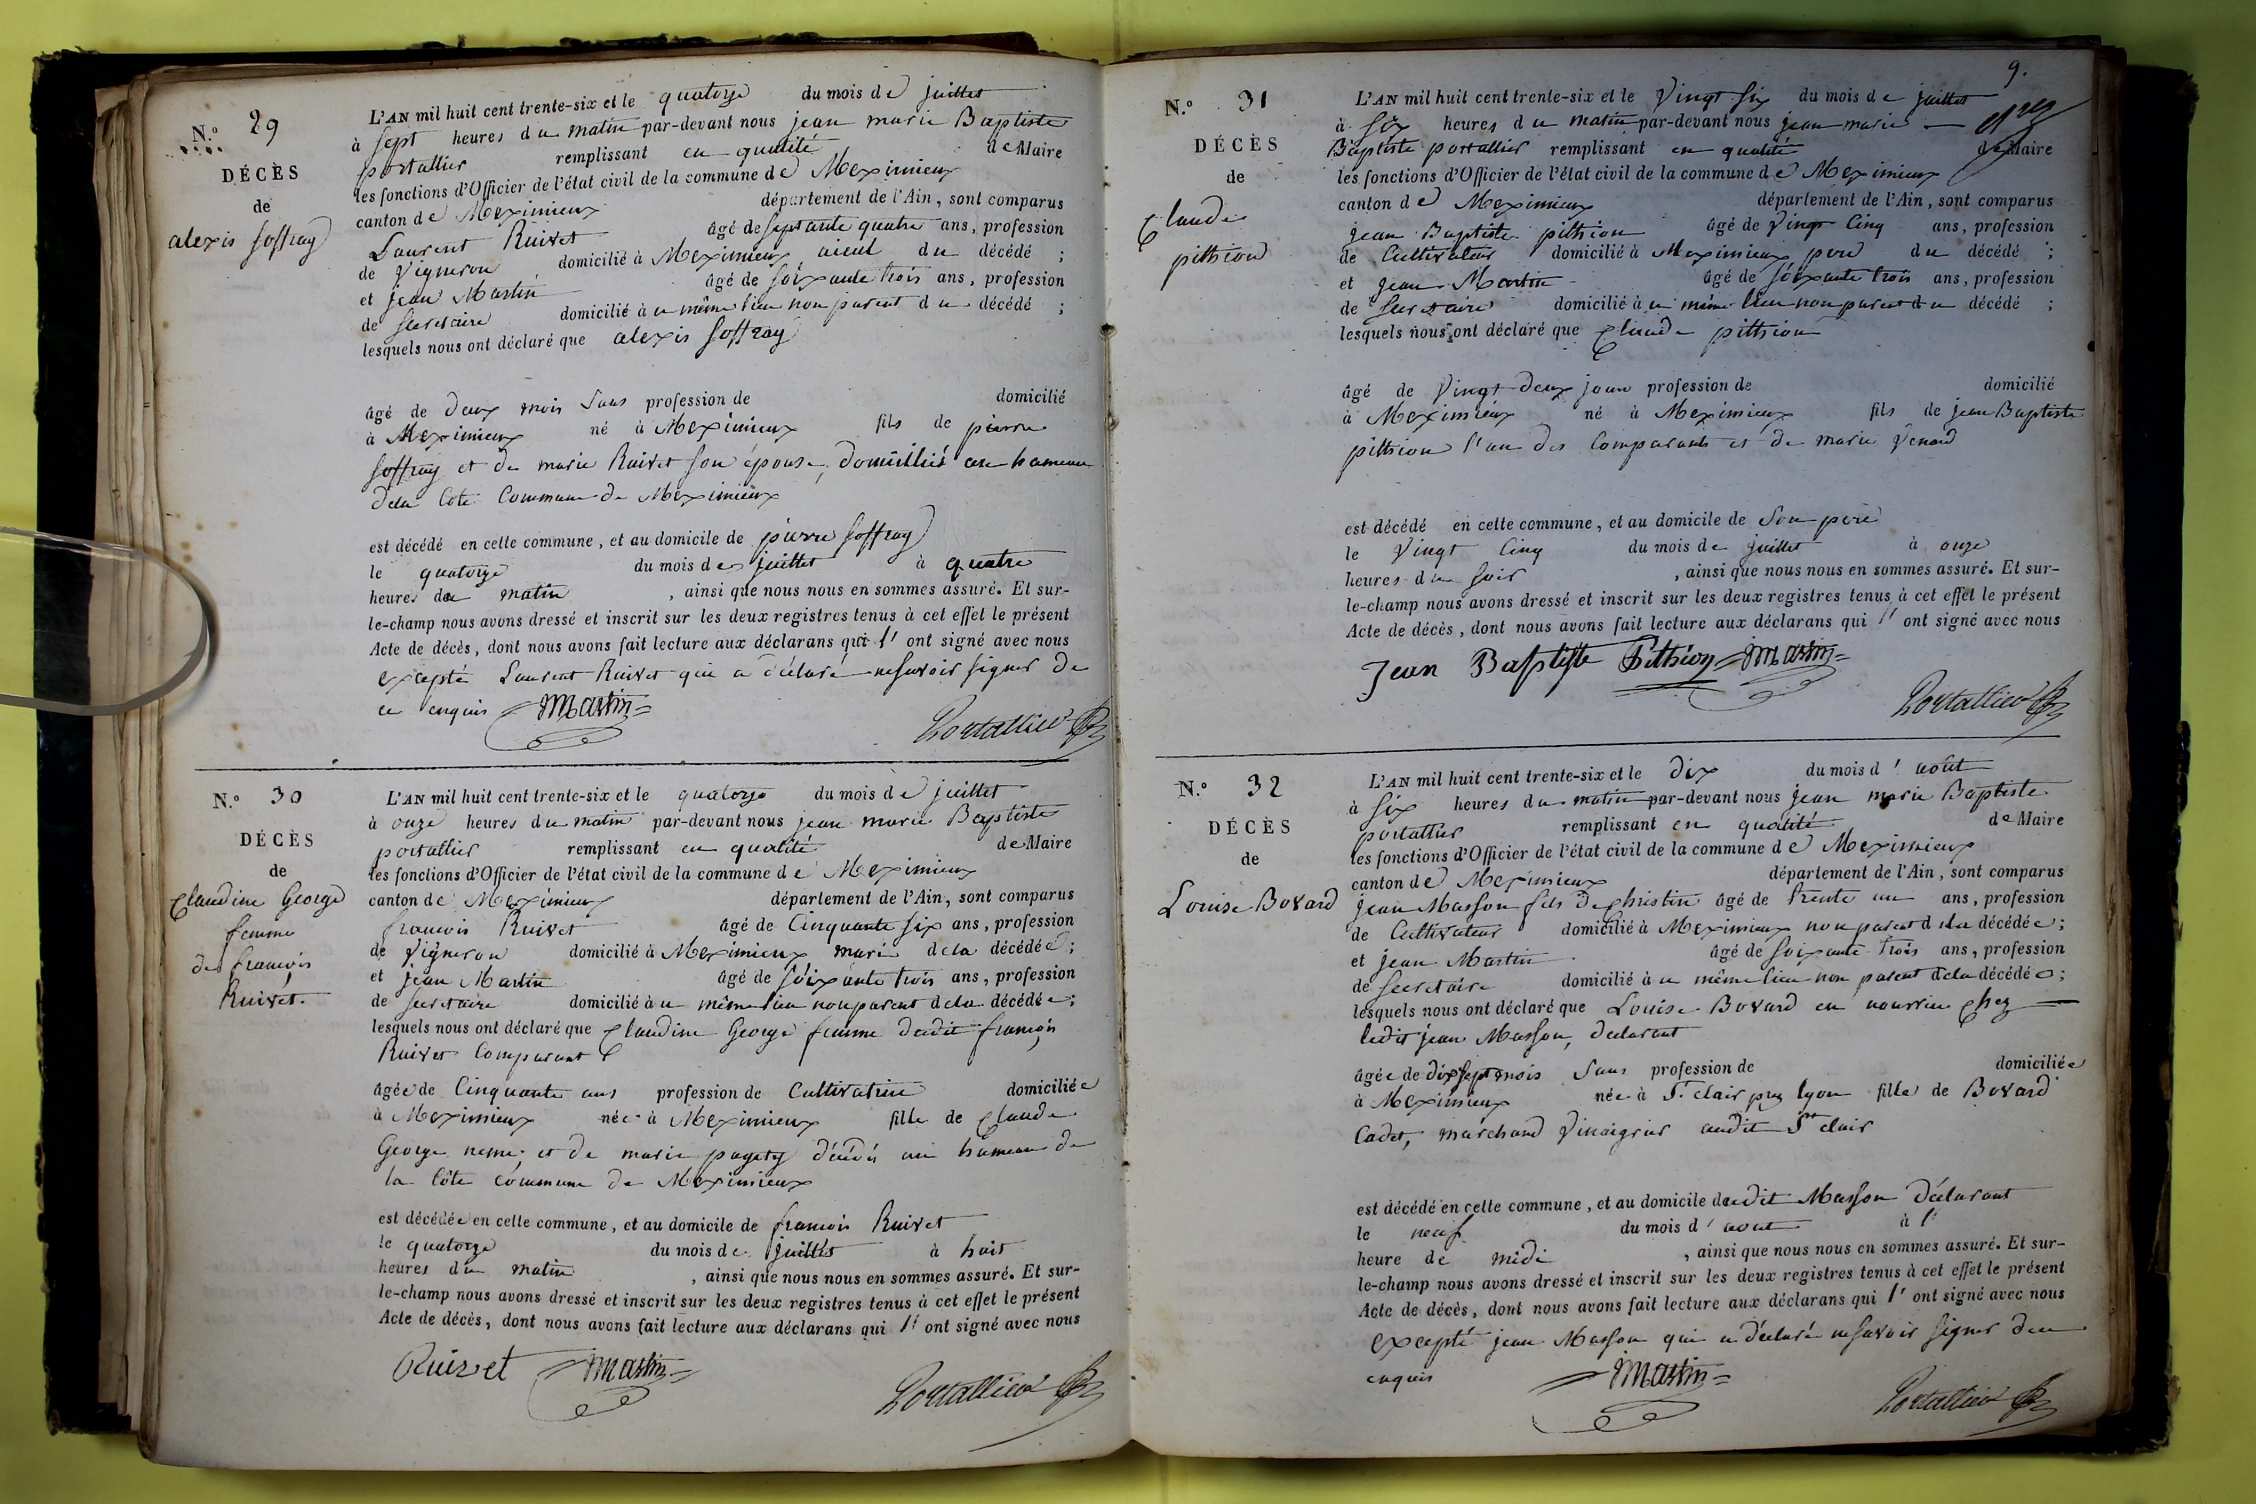 N.º 29
DÉCÈS
de
alexis soffray
L'AN mil huit cent trente-six et le quatorze du mois de juillet
à sept heures du matin par-devant nous jean marie Baptiste
portallier remplissant en qualité de Maire
les fonctions d'Officier de l'état civil de la commune de Meximieux
canton de Meximieux département de l'Ain, sont comparus
Laurent Ruivet âgé de septante quatre ans, profession
de vigneron domicilié à Meximieux aieul du décédé ;
et jean Martin âgé de soixante trois ans, profession
de secretaire domicilié à u même lieu non parent du décédé ;
lesquels nous ont déclaré que alexis soffray
âgé de deux mois sans profession de domicilié
à Meximieux né à Meximieux fils de pierre
soffray et de marie Ruivet son épouse, domiciliés au hameau
dela Côte Commune de Meximieux
est décédé en cette commune, et au domicile de pierre soffray
le quatorze du mois de juillet à quatre
heures du matin , ainsi que nous nous en sommes assuré. Et sur-
le-champ nous avons dressé et inscrit sur les deux registres tenus à cet effet le présent
Acte de décès, dont nous avons fait lecture aux déclarans qui l' ont signé avec nous
excepté Laurent Ruivet qui a déclaré ne savoir signer de
ce enquis Martin
Portallier
N.º 30
DÉCÈS
de
Claudine George
femme
de françois
Ruivet.
L'AN mil huit cent trente-six et le quatorze du mois de juillet
à onze heures du matin par-devant nous jean marie Baptiste
portallier remplissant en qualité de Maire
les fonctions d'Officier de l'état civil de la commune de Meximieux
canton de Meximieux département de l'Ain, sont comparus
françois Ruivet âgé de Cinquante six ans, profession
de vigneron domicilié à Meximieux mari dela décédée ;
et jean Martin âgé de soixante trois ans, profession
de secretaire domicilié à u même lieu non parent dela décédée ;
lesquels nous ont déclaré que Claudine George femme dudit françois
Ruivet Comparant
âgée de Cinquante ans profession de Cultivatrice domiciliée
à Meximieux née à Meximieux fille de Claude
George et de marie décédés au hameau de
la Côte commune de Meximieux
est décédée en cette commune, et au domicile de françois Ruivet
le quatorze du mois de juillet à huit
heures du matin , ainsi que nous nous en sommes assuré. Et sur-
le-champ nous avons dressé et inscrit sur les deux registres tenus à cet effet le présent
Acte de décès, dont nous avons fait lecture aux déclarans qui l' ont signé avec nous
Ruivet Martin
Portallier
9.
N.º 31
DÉCÈS
de
Claude
pithion
L'AN mil huit cent trente-six et le vingt six du mois de juillet
à six heures du matin par-devant nous jean marie
Baptiste portallier remplissant en qualité de Maire
les fonctions d'Officier de l'état civil de la commune de Meximieux
canton de Meximieux département de l'Ain, sont comparus
jean Baptiste pithion âgé de vingt cinq ans, profession
de Cultivateur domicilié à Meximieux pere du décédé ;
et jean Martin âgé de soixante trois ans, profession
de secretaire domicilié à u même lieu non parent du décédé ;
lesquels nous ont déclaré que Claude pithion
âgé de vingt deux jours profession de domicilié
à Meximieux né à Meximieux fils de jean Baptiste
pithion l'un des Comparants et de marie venard
est décédé en cette commune, et au domicile de son pere
le vingt cinq du mois de juillet à onze
heures du soir , ainsi que nous nous en sommes assuré. Et sur-
le-champ nous avons dressé et inscrit sur les deux registres tenus à cet effet le présent
Acte de décès, dont nous avons fait lecture aux déclarans qui l' ont signé avec nous
Jean Baptiste Pithion Martin
Portallier
N.º 32
DÉCÈS
de
Louise Bovard
L'AN mil huit cent trente-six et le dix du mois d' août
à six heures du matin par-devant nous jean marie Baptiste
portallier remplissant en qualité de Maire
les fonctions d'Officier de l'état civil de la commune de Meximieux
canton de Meximieux département de l'Ain, sont comparus
jean Masson fils de christin âgé de trente un ans, profession
de Cultivateur domicilié à Meximieux non parent dela décédée ;
et jean Martin âgé de soixante trois ans, profession
de secretaire domicilié à u même lieu non parent dela décédée ;
lesquels nous ont déclaré que Louise Bovard en nourrice chez
ledit jean Masson, declarant
âgée de dix sept mois sans profession de domiciliée
à Meximieux née à St clair prez lyon fille de Bovard
Cadet, marchand vinaigrier audit St clair
est décédé en cette commune, et au domicile dudit Masson déclarant
le neuf du mois d' aout à l'
heure de midi , ainsi que nous nous en sommes assuré. Et sur-
le-champ nous avons dressé et inscrit sur les deux registres tenus à cet effet le présent
Acte de décès, dont nous avons fait lecture aux déclarans qui l' ont signé avec nous
excepté jean Masson qui a déclaré ne savoir signer de ce
enquis Martin
Portallier